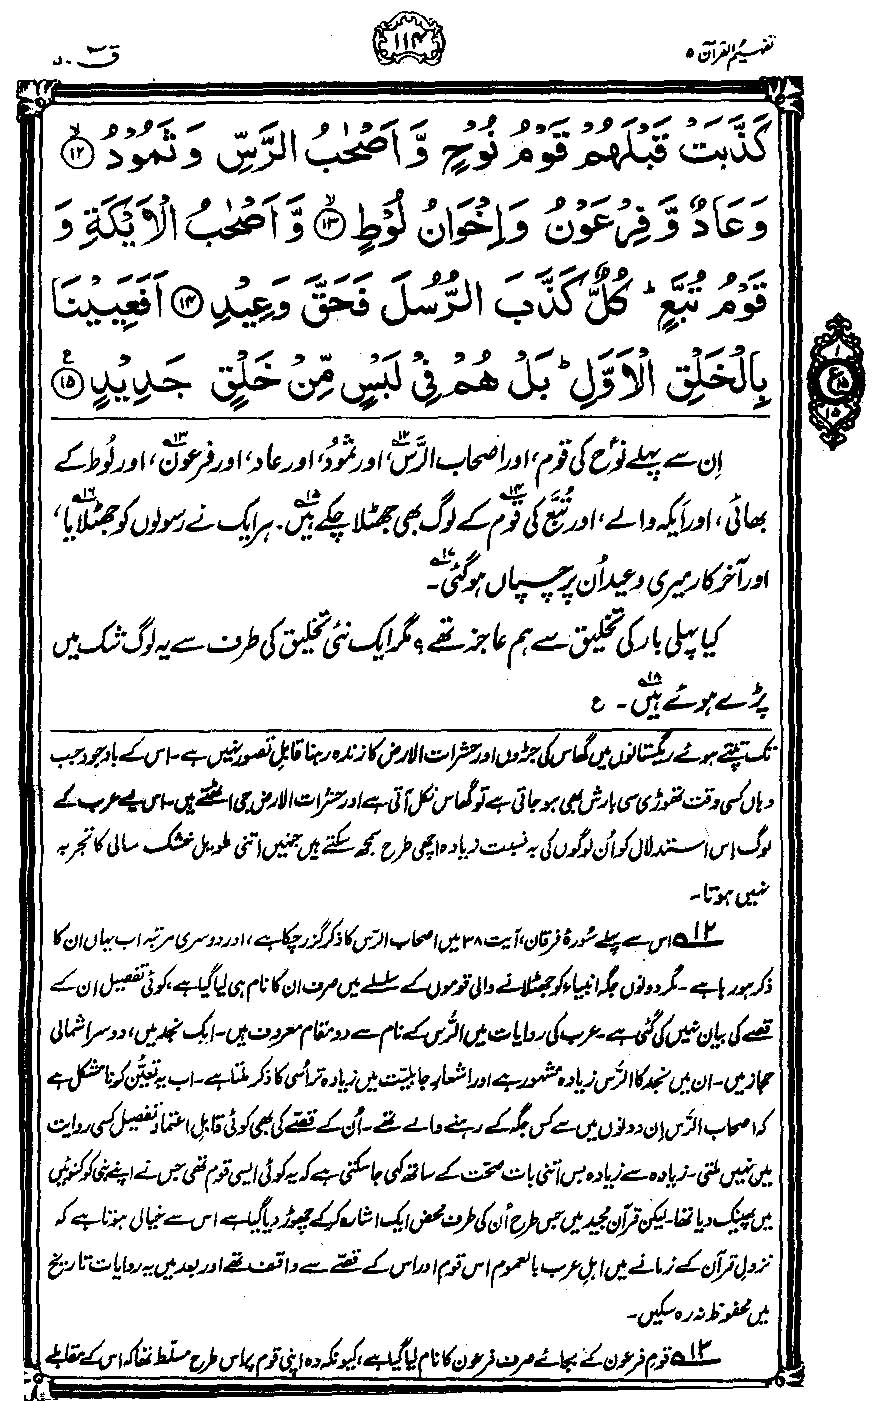 تفہیم القرآن ۵
۱۱۴
قٓ ۵۰
كَذَّبَتْ قَبْلَهُمْ قَوْمُ نُوْحٍ وَّ اَصْحٰبُ الرَّسِّ وَ ثَمُوْدُ ﴿۱۲﴾ۙ
وَ عَادٌ وَّ فِرْعَوْنُ وَ اِخْوَانُ لُوْطٍ ﴿۱۳﴾ۙ وَّ اَصْحٰبُ الْاَيْكَةِ وَ
قَوْمُ تُبَّعٍ ؕ كُلٌّ كَذَّبَ الرُّسُلَ فَحَقَّ وَعِيْدِ ﴿۱۴﴾ اَفَعَيِيْنَا
بِالْخَلْقِ الْاَوَّلِ ؕ بَلْ هُمْ فِيْ لَبْسٍ مِّنْ خَلْقٍ جَدِيْدٍ ﴿۱۵﴾ع
۱
ع ۱۵
۱۵
اِن سے پہلے نوحؑ کی قوم، اور اصحاب الرَّس۱۲، اور ثمُود، اور عاد، اور فرعون۱۳، اور لُوط کے
بھائی، اور اَیکہ والے، اور تُبَّع کی قوم۱۴ کے لوگ بھی جھٹلا چکے ہیں۱۵۔ ہر ایک نے رسولوں کو جھٹلایا۱۶،
اور آخر کار میری وعید اُن پر چسپاں ہو گئی۱۷۔
کیا پہلی بار کی تخلیق سے ہم عاجز تھے؟ مگر ایک نئی تخلیق کی طرف سے یہ لوگ شک میں
پڑے ہوئے ہیں۱۸۔ ع
تک تپتے ہوئے ریگستانوں میں گھاس کی جڑوں اور حشرات الارض کا زندہ رہنا قابلِ تصور نہیں ہے۔ اس کے باوجود جب
وہاں کسی وقت تھوڑی سی بارش بھی ہو جاتی ہے تو گھاس نکل آتی ہے اور حشرات الارض جی اٹھتے ہیں۔ اس لیے عرب کے
لوگ اِس استدلال کو اُن لوگوں کی بہ نسبت زیادہ اچھی طرح سمجھ سکتے ہیں جنہیں اتنی طویل خشک سالی کا تجربہ
نہیں ہوتا۔
۱۲ے اس سے پہلے سُورۂ فرقان، آیت ۳۸ میں اصحاب الرّس کا ذکر گزر چکا ہے، اور دوسری مرتبہ اب یہاں ان کا
ذکر ہو رہا ہے۔ مگر دونوں جگہ انبیاء کو جھٹلانے والی قوموں کے سلسلے میں صرف ان کا نام ہی لیا گیا ہے، کوئی تفصیل ان کے
قصے کی بیان نہیں کی گئی ہے۔ عرب کی روایات میں الرَّس کے نام سے دو مقام معروف ہیں۔ ایک نجد میں، دوسرا شمالی
حجاز میں۔ ان میں نجد کا الرَّس زیادہ مشہور ہے اور اشعارِ جاہلیّت میں زیادہ تر اسی کا ذکر ملتا ہے۔ اب یہ تعیُّن کرنا مشکل ہے
کہ اصحاب الرَّس اِن دونوں میں سے کس جگہ کے رہنے والے تھے۔ اُن کے قصّے کی بھی کوئی قابلِ اعتماد تفصیل کسی روایت
میں نہیں ملتی۔ زیادہ سے زیادہ بس اتنی بات صحت کے ساتھ کہی جا سکتی ہے کہ یہ کوئی ایسی قوم تھی جس نے اپنے نبی کو کنوئیں
میں پھینک دیا تھا۔ لیکن قرآن مجید میں جس طرح اُن کی طرف محض ایک اشارہ کر کے چھوڑ دیا گیا ہے اس سے خیال ہوتا ہے کہ
نزولِ قرآن کے زمانے میں اہلِ عرب بالعموم اس قوم اور اس کے قصّے سے واقف تھے اور بعد میں یہ روایات تاریخ
میں محفوظ نہ رہ سکیں۔
۱۳ے قومِ فرعون کے بجائے صرف فرعون کا نام لیا گیا ہے، کیونکہ وہ اپنی قوم پر اس طرح مسلط تھا کہ اس کے مقابلے